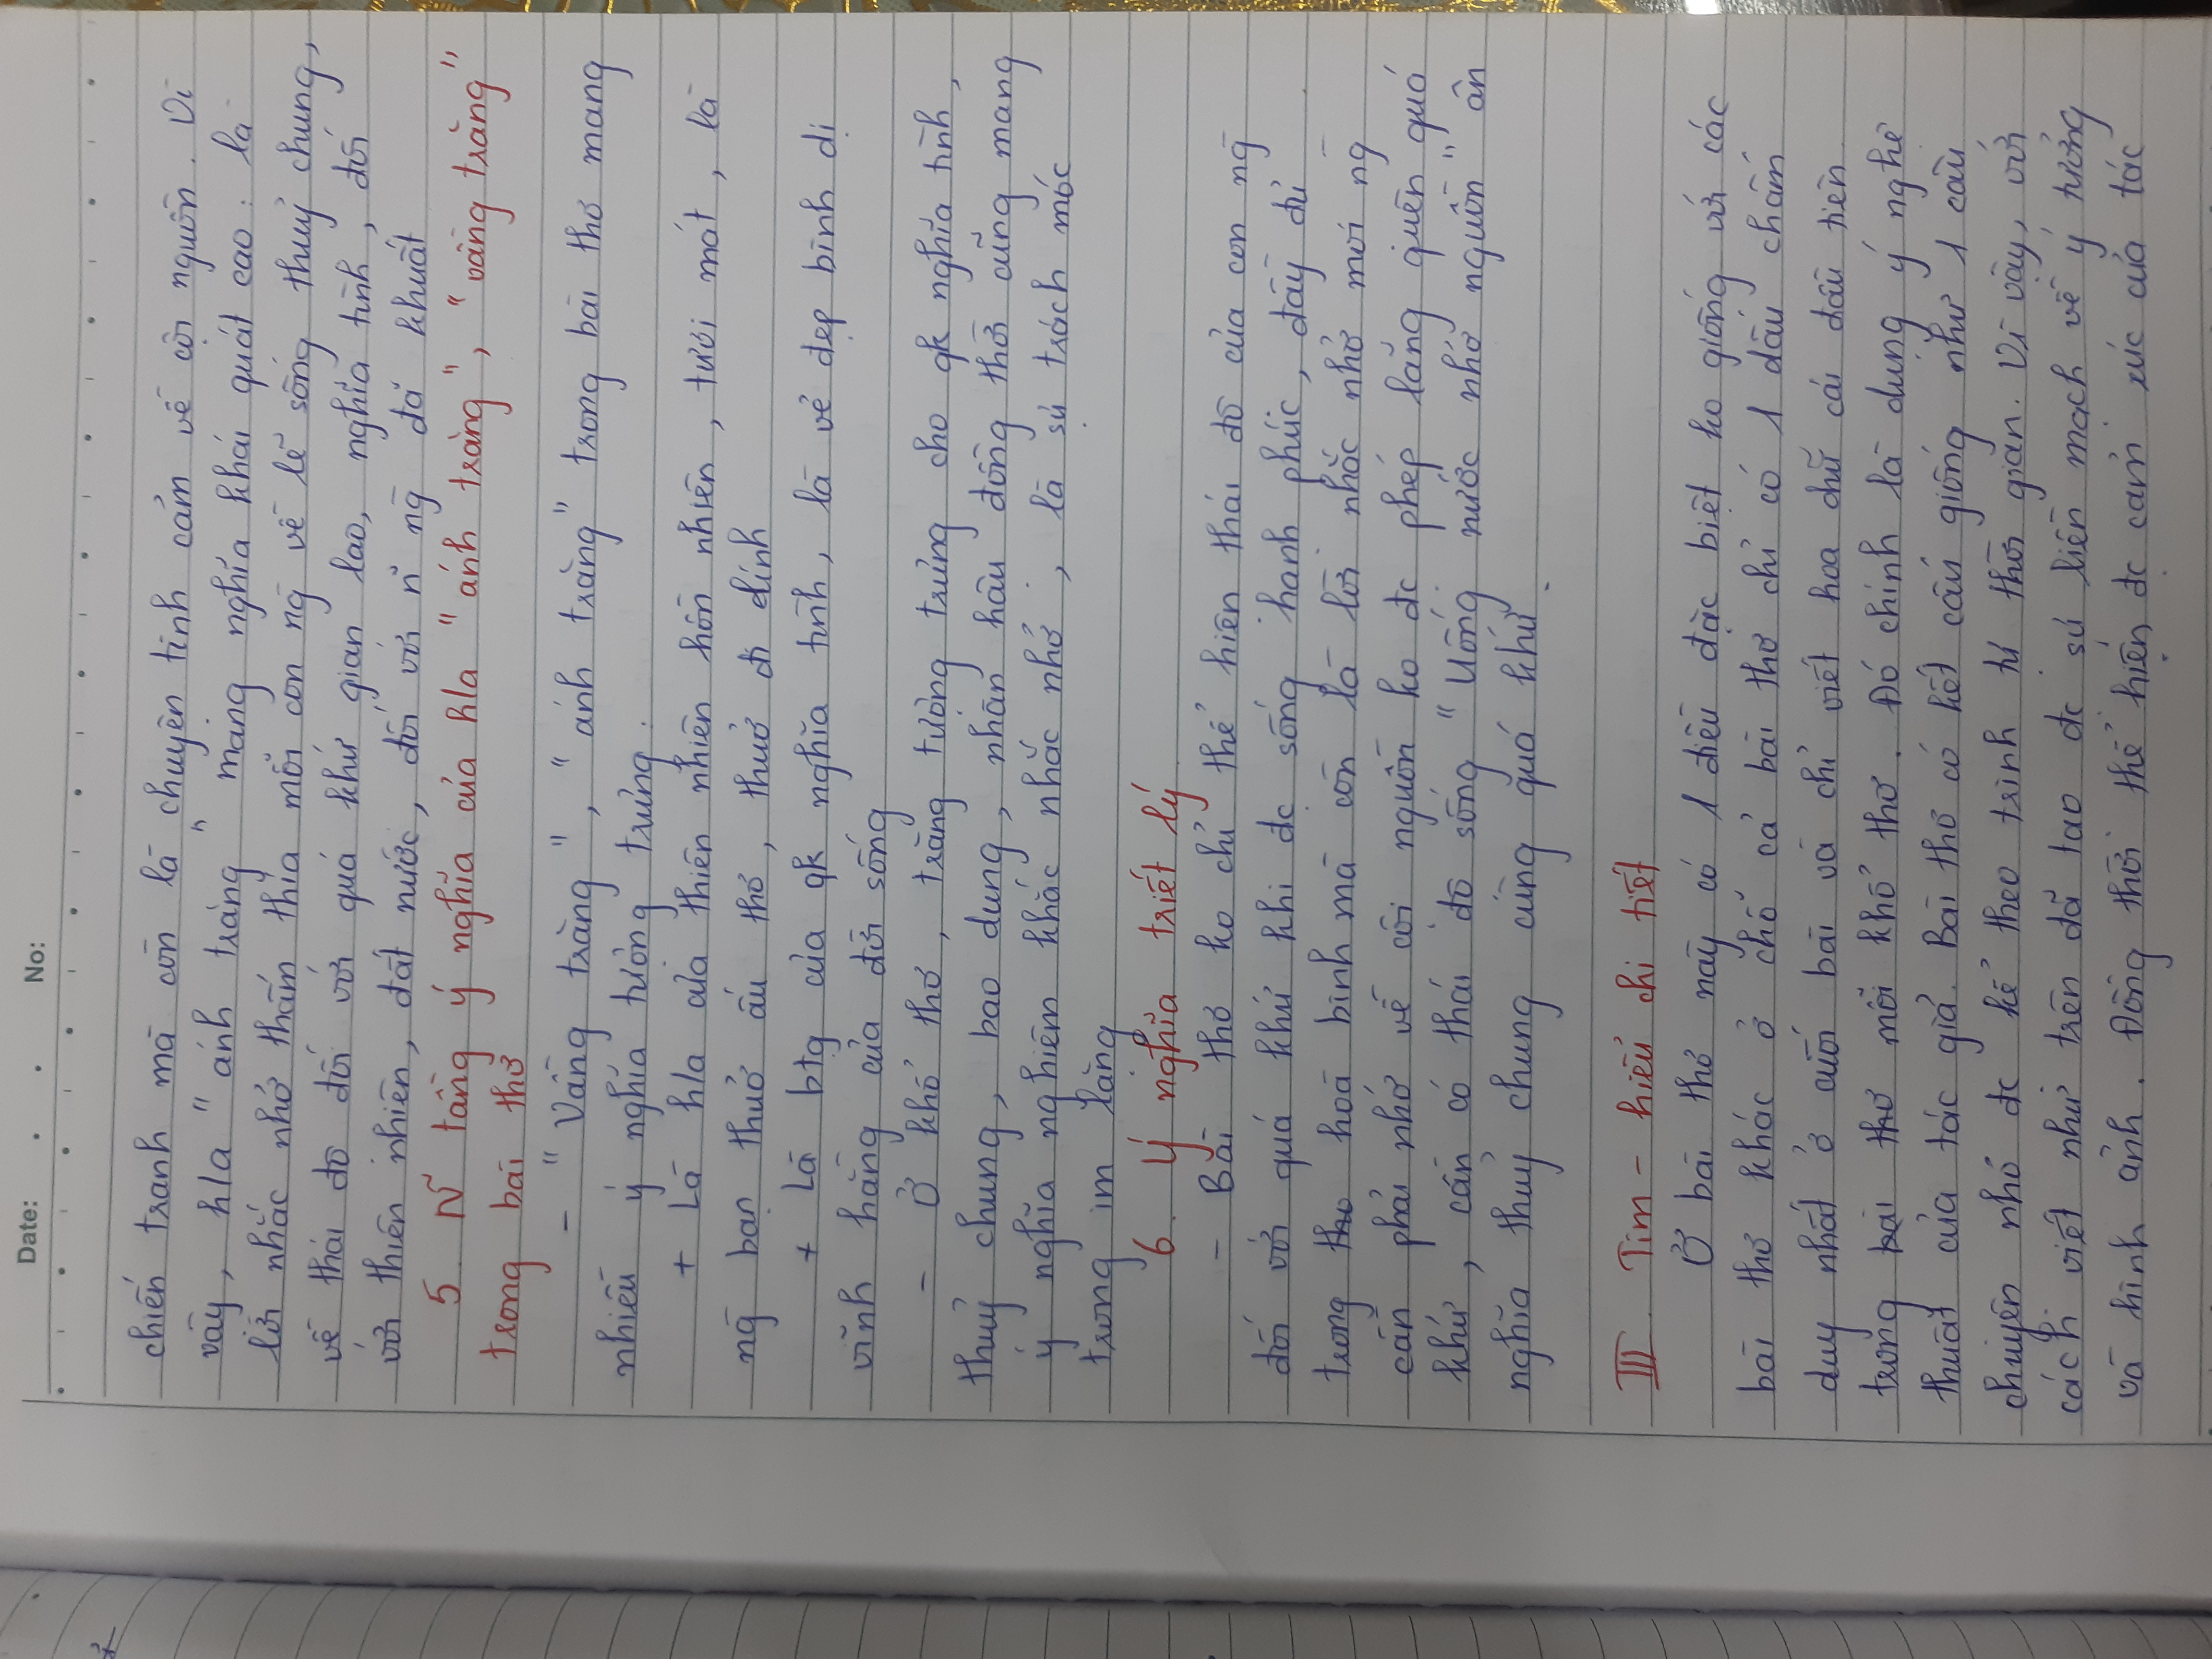 Date: . . No:
chiến tranh mà còn là chuyện tình cảm về cội nguồn. Vì
vậy, h/a "ánh trăng" mang nghĩa khái quát cao: là
lời nhắc nhở thấm thía mỗi con ng về lẽ sống thuỷ chung,
về thái độ đối với quá khứ gian lao, nghĩa tình, đối
với thiên nhiên, đất nước, đối với n~ ng đã khuất
5. N~ tầng ý nghĩa của h/a "ánh trăng", "vầng trăng"
trong bài thơ
- "Vầng trăng", "ánh trăng" trong bài thơ mang
nhiều ý nghĩa tượng trưng.
+ Là h/a của thiên nhiên hồn nhiên, tươi mát, là
ng bạn thuở ấu thơ, thuở đi lính
+ Là btg của qk nghĩa tình, là vẻ đẹp bình dị
vĩnh hằng của đời sống
- Ở khổ thơ, trăng tượng trưng cho qk nghĩa tình,
thuỷ chung, bao dung, nhân hậu đồng thời cũng mang
ý nghĩa nghiêm khắc nhắc nhở, là sự trách móc
trong im lặng
6. Ý nghĩa triết lý
- Bài thơ ko chỉ thể hiện thái độ của con ng
đối với quá khứ khi đc sống hạnh phúc, đầy đủ
trong hoà bình mà còn là lời nhắc nhở mọi ng
cần phải nhớ về cội nguồn ko đc phép lãng quên quá
khứ, cần có thái độ sống "Uống nước nhớ nguồn" ân
nghĩa thuỷ chung cùng quá khứ.
III. Tìm - hiểu chi tiết
Ở bài thơ này có 1 điều đặc biệt ko giống với các
bài thơ khác ở chỗ cả bài thơ chỉ có 1 dấu chấm
duy nhất ở cuối bài và chỉ viết hoa chữ cái đầu tiên
trong bài thơ mỗi khổ thơ. Đó chính là dụng ý nghệ
thuật của tác giả. Bài thơ có kết cấu giống như 1 câu
chuyện nhỏ đc kể theo trình tự thời gian. Vì vậy, với
cách viết như trên đã tạo đc sự liền mạch về ý tưởng
và hình ảnh. Đồng thời thể hiện đc cảm xúc của tác